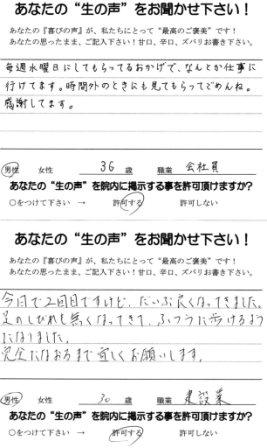 あなたの“生の声”をお聞かせ下さい！
あなたの『喜びの声』が、私たちにとって“最高のご褒美”です！
あなたの思ったまま、ご記入下さい！甘口、辛口、ズバリお書き下さい。
毎週水曜日にしてもらってるおかげで、なんとか仕事に
行けてます。時間外のときにも見てもらってごめんね。
感謝してます。
男性 女性 36 歳 職業 会社員
あなたの“生の声”を院内に掲示する事を許可頂けますか？
○をつけて下さい → 許可する 許可しない
あなたの“生の声”をお聞かせ下さい！
あなたの『喜びの声』が、私たちにとって“最高のご褒美”です！
あなたの思ったまま、ご記入下さい！甘口、辛口、ズバリお書き下さい。
今日で2回目ですけど、だいぶ良くなってきました。
足のしびれも無くなってきて、ふつうに歩けるよう
になりました。
完全になおるまで宜しくお願いします。
男性 女性 30 歳 職業 建設業
あなたの“生の声”を院内に掲示する事を許可頂けますか？
○をつけて下さい → 許可する 許可しない